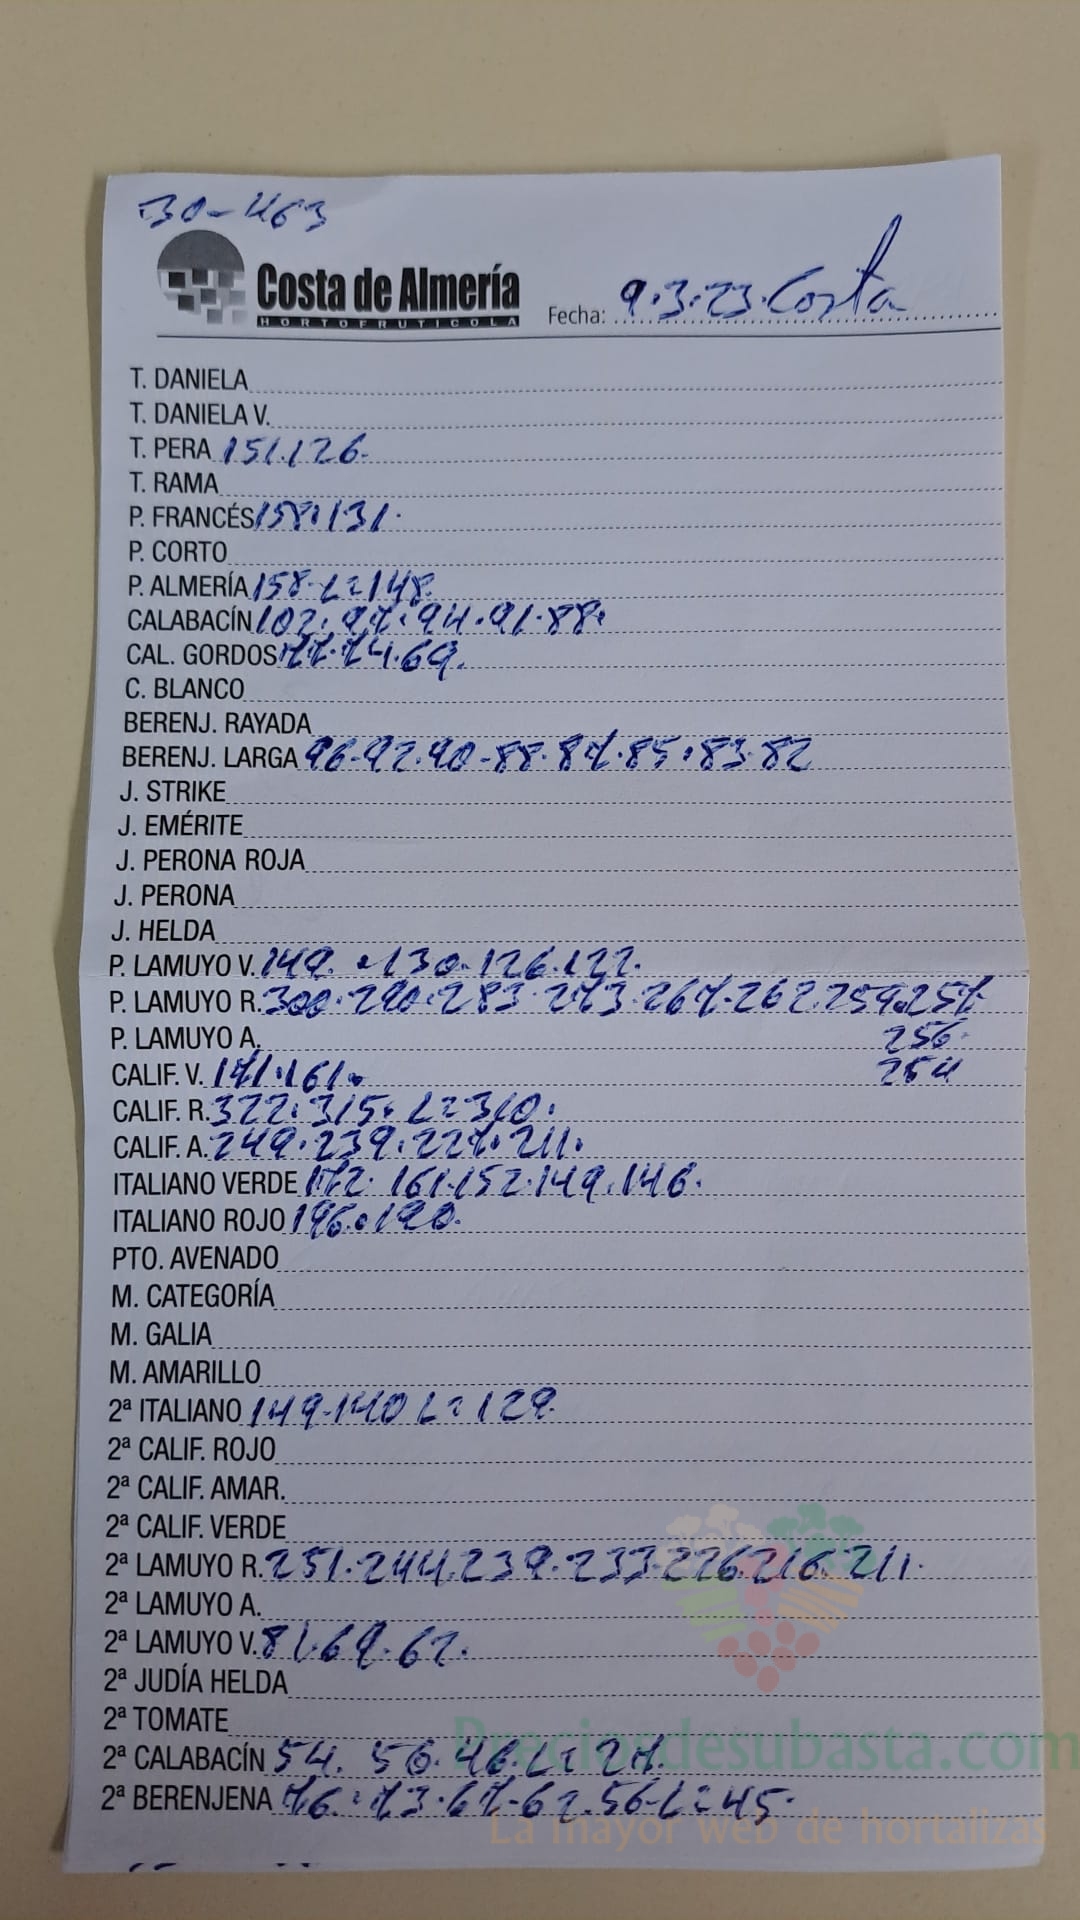 30-463
Costa de Almería
HORTOFRUTICOLA
Fecha: 9.3.23. Costa
T. DANIELA
T. DANIELA V.
T. PERA 151.126.
T. RAMA
P. FRANCÉS 158.131.
P. CORTO
P. ALMERÍA 158-L=148.
CALABACÍN 102.97.94.91.88.
CAL. GORDOS 77.74.69.
C. BLANCO
BERENJ. RAYADA
BERENJ. LARGA 96-92.90-88.87.85.83.82
J. STRIKE
J. EMÉRITE
J. PERONA ROJA
J. PERONA
J. HELDA
P. LAMUYO V. 149. 130.126.122.
P. LAMUYO R. 300.290.283.273.267.262.259.257
P. LAMUYO A. 256.
CALIF. V. 171.161. 254
CALIF. R. 322.315. L=310.
CALIF. A. 249.239.227.211.
ITALIANO VERDE 172. 161.152.149.146.
ITALIANO ROJO 196.190.
PTO. AVENADO
M. CATEGORÍA
M. GALIA
M. AMARILLO
2ª ITALIANO 149.140 L=129.
2ª CALIF. ROJO
2ª CALIF. AMAR.
2ª CALIF. VERDE
2ª LAMUYO R. 251.244.239.233.226.216.211.
2ª LAMUYO A.
2ª LAMUYO V. 81.69.62.
2ª JUDÍA HELDA
2ª TOMATE
Preciosdesubasta.com
2ª CALABACÍN 54. 50.46.L=27.
2ª BERENJENA 76.73.67-62.56-L=45.
La mayor web de hortalizas